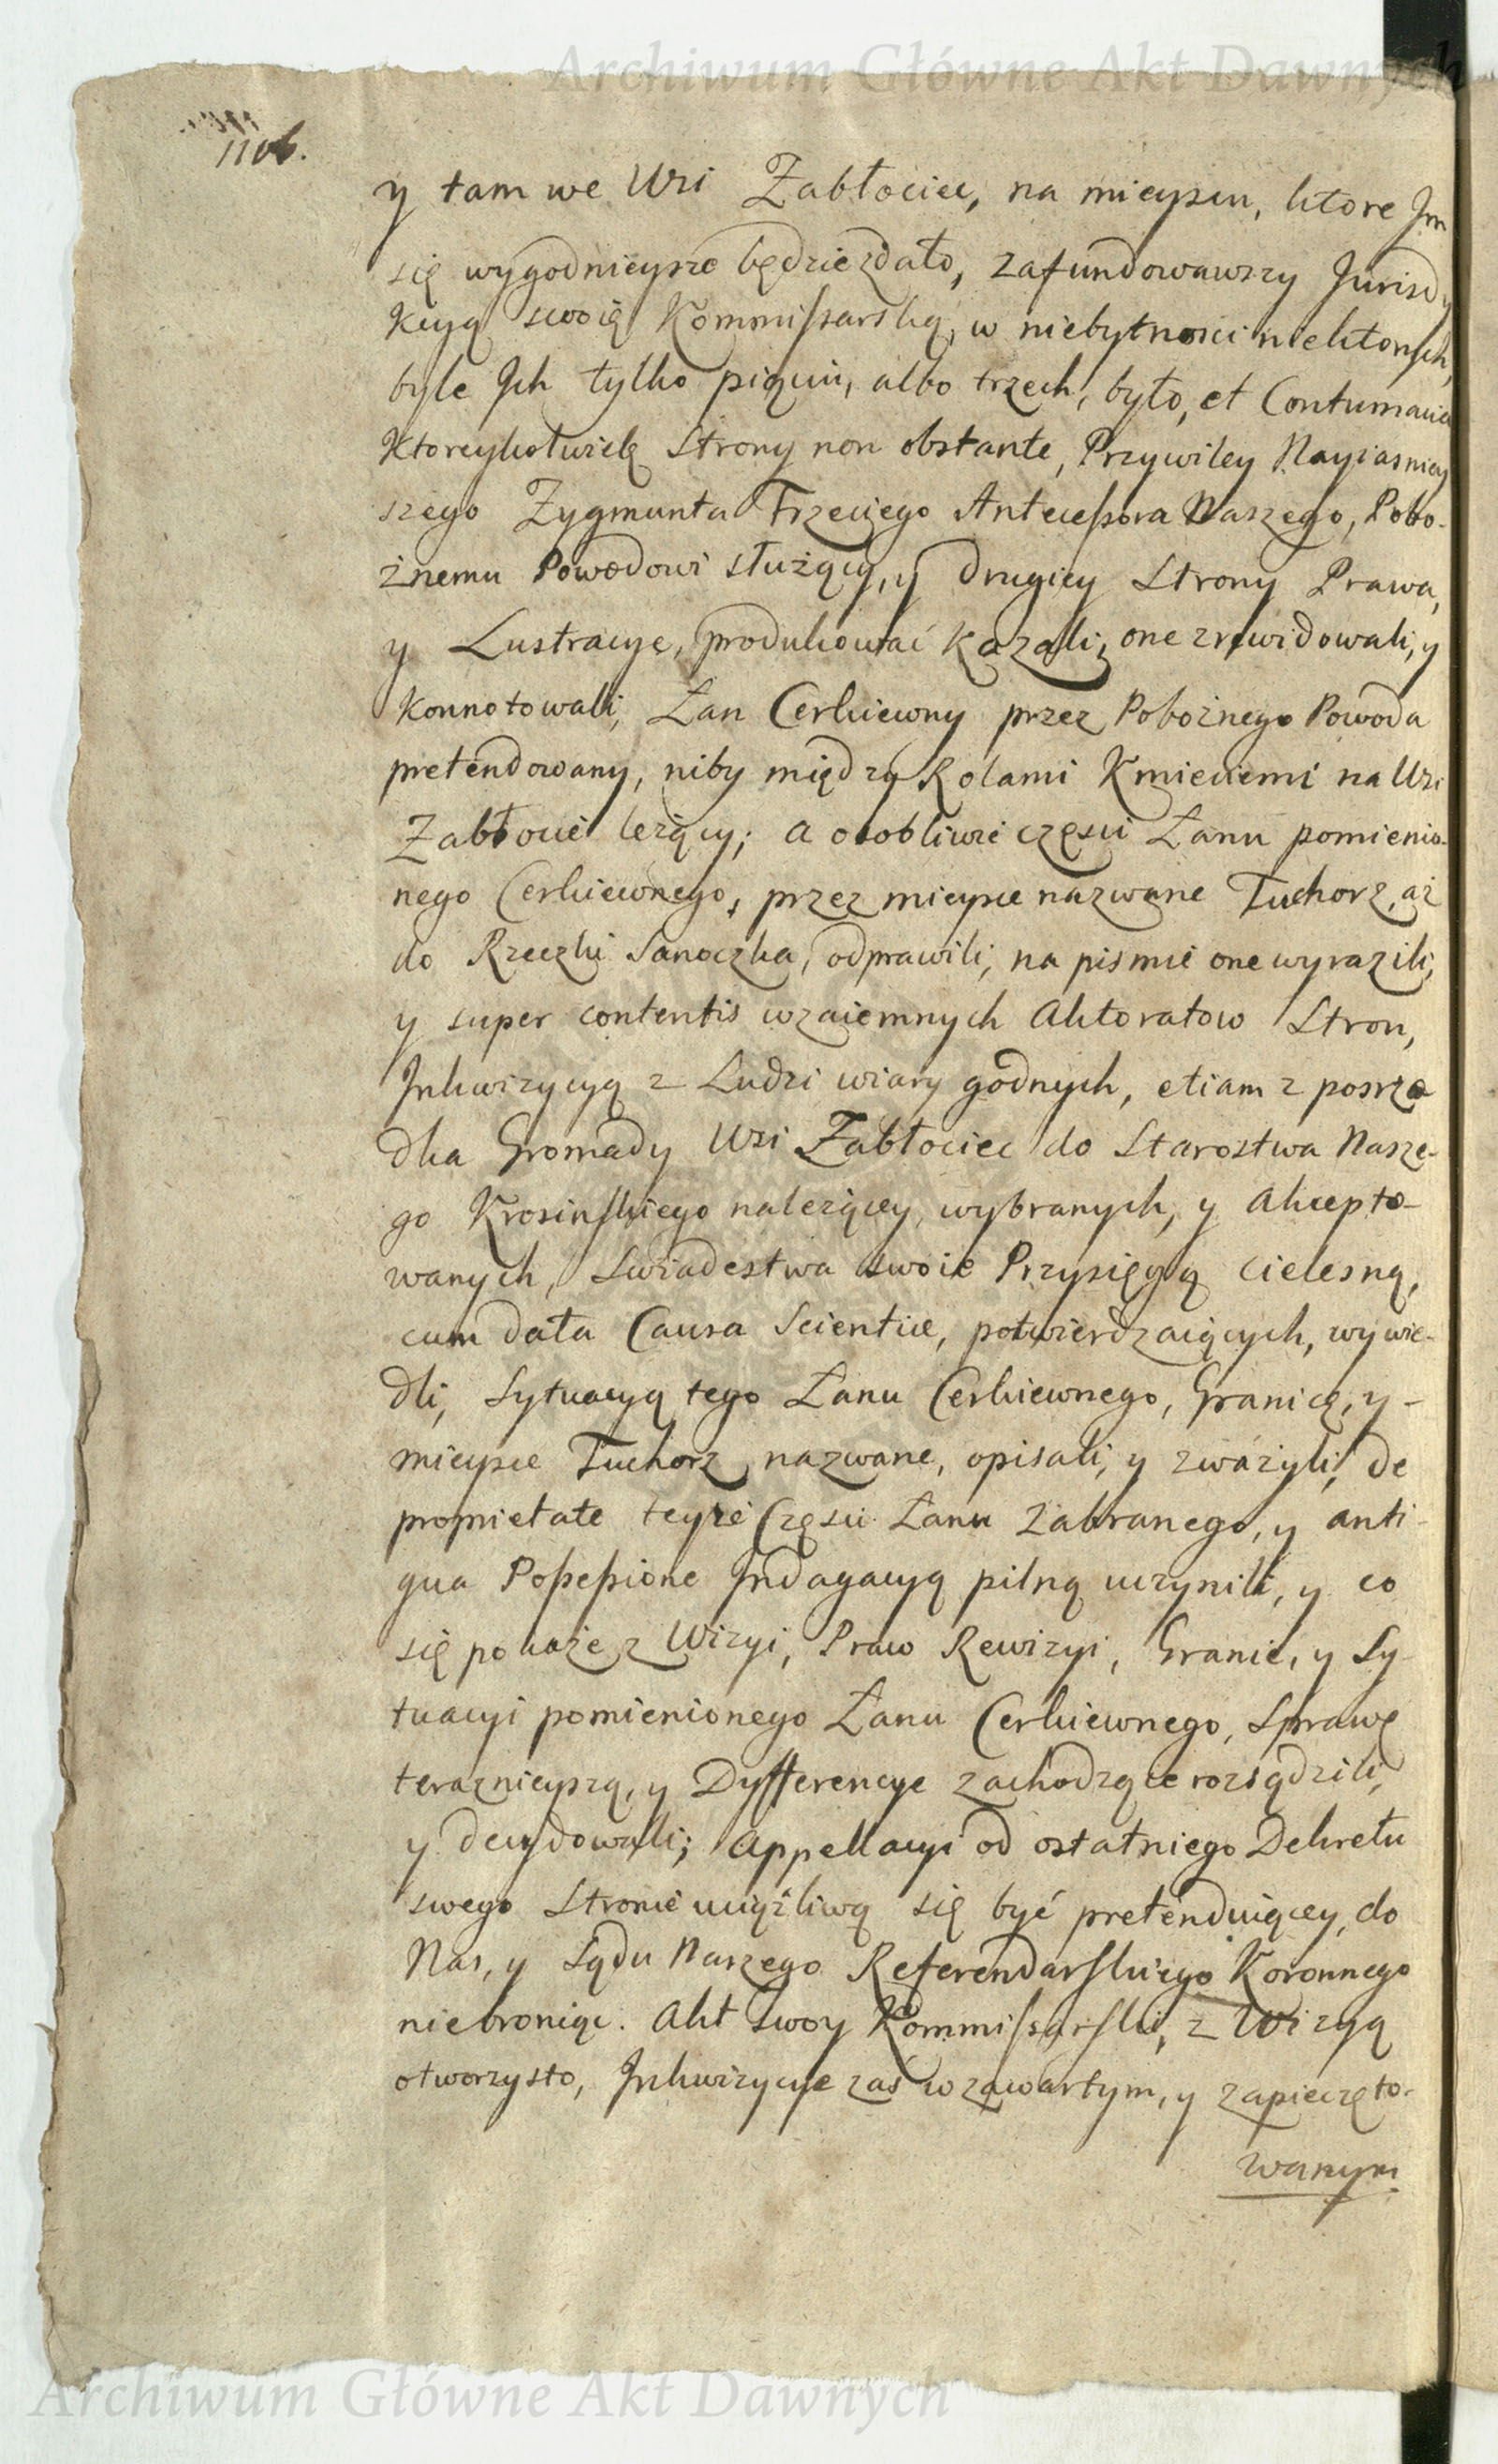 Archiwum Główne Akt Dawnych
1106.
y tam we Wsi Zabłociec, na mieyscu, ktore Jm
się wygodnieysze będzie zdało, zafundowawszy Jurisdy
kcyą swoię Kommissarską, w niebytnosci niektorych,
byle Jch tylko pięciu, albo trzech, było, et Contumacia
Ktoreykolwiek Strony non obstante, Przywiley Nayiasniey
szego Zygmunta Trzeciego Antecessora Naszego, Pobo-
żnemu Powodowi służący, y drugiey Strony Prawa,
y Lustracye, produkować kazali, one zrewidowali, y
Konnotowali, Łan Cerkiewny przez Pobożnego Powoda
pretendowany, niby między Rolami Kmieciemi na Wsi
Zabłocie leżący; a osobliwie części Łanu pomienio-
nego Cerkiewnego, przez mieysce nazwane Tuchorz, aż
do Rzeczki Sanoczka, odprawili, na pismie one wyrazili,
y super contentis wzaiemnych Aktoratow Stron,
Jnkwizycyą z Ludzi wiary godnych, etiam z posrzo
dka Gromady Wsi Zabłociec do Starostwa Nasze-
go Krosinskiego należącey, wybranych, y Akcepto-
wanych, Swiadestwa swoie Przysięgą cielesną,
cum data Causa Scientiæ, potwierdzaiących, wywie-
dli, Sytuacyą tego Łanu Cerkiewnego, Granicę, y -
mieysce Tuchorz nazwane, opisali, y zważyli, de
proprietate teyże Części Łanu zabranego, y anti-
qua Possessione Jndagacyą pilną uczynili, y co
się pokaże z Wizyi, Praw Rewizyi, Granic, y Sy-
tuacyi pomienionego Łanu Cerkiewnego, Sprawę
teraznieyszą, y Dyfferencye zachodzące rozsądzili,
y decydowali; Appellacyi od ostatniego Dekretu
swego Stronie uciążliwą się być pretenduiącey, do
Nas, y Sądu Naszego Referendarskiego Koronnego
niebroniąc. Akt swoy Kommissarski, z Wizyą
otworzysto, Jnkwizycye zaś w zawartym, y zapieczęto-
wanym
Archiwum Główne Akt Dawnych